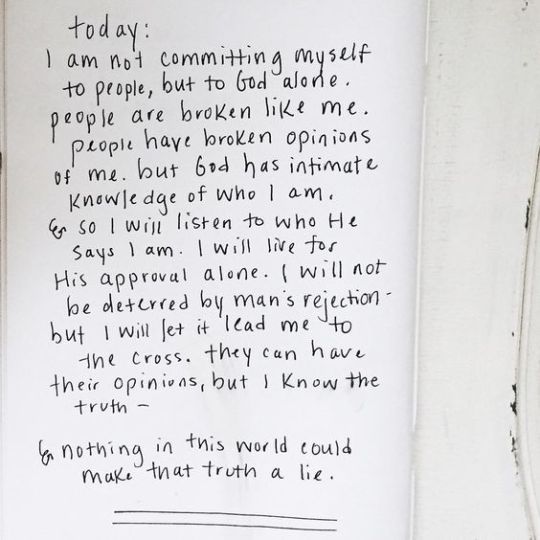 today:
I am not committing myself
to people, but to God alone.
people are broken like me.
people have broken opinions
of me. but God has intimate
knowledge of who I am.
& so I will listen to who He
says I am. I will live for
His approval alone. I will not
be deterred by man's rejection -
but I will let it lead me to
the cross. they can have
their opinions, but I know the
truth -
& nothing in this world could
make that truth a lie.